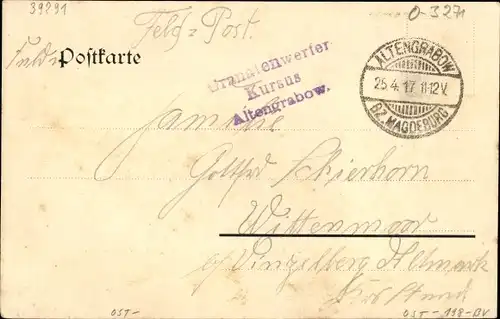 39291
O-3271
Feld-Post.
Postkarte
Granatenwerfer
Kursus
Altengrabow.
ALTENGRABOW
25.4.17 11-12V.
BZ. MAGDEBURG
Familie
Schierhorn
Wittenmoor
Vinzelberg Altmark
OST-
OST-198-BV